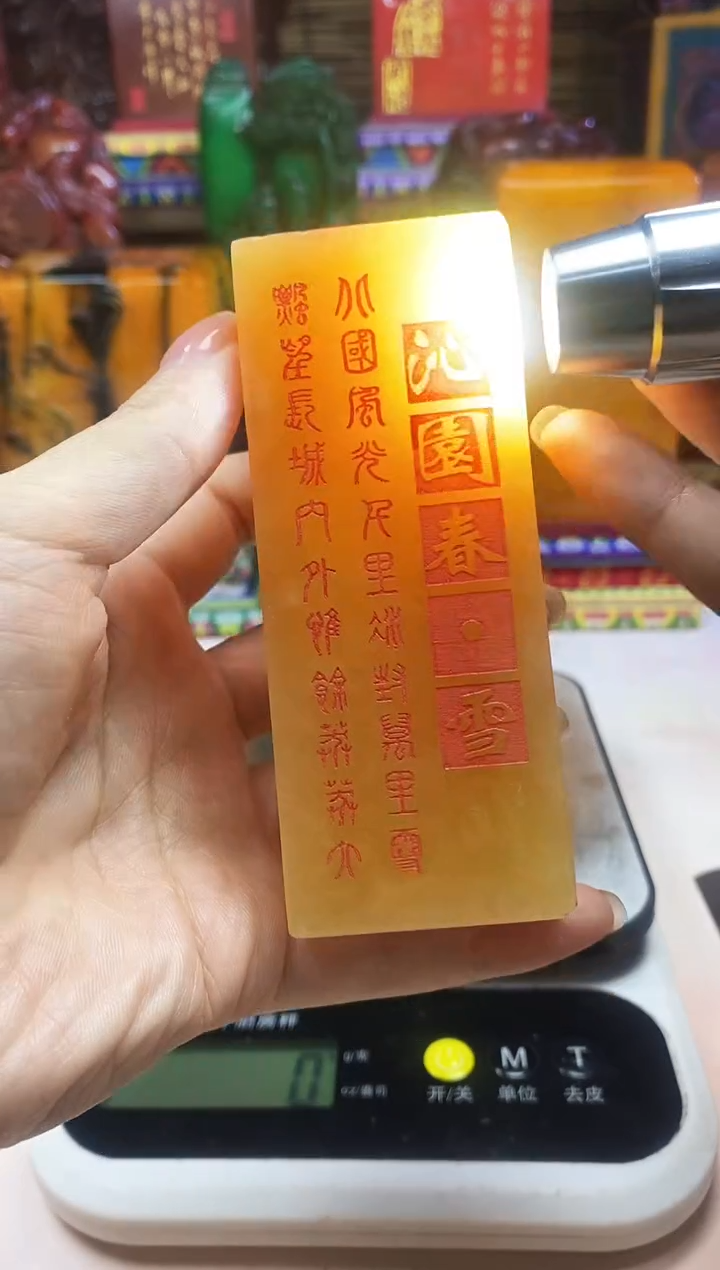 沁園春·雪
北國風光千里冰封萬里雪
飄望長城內外惟餘莽莽大
0
M
T
开/关
单位
去皮